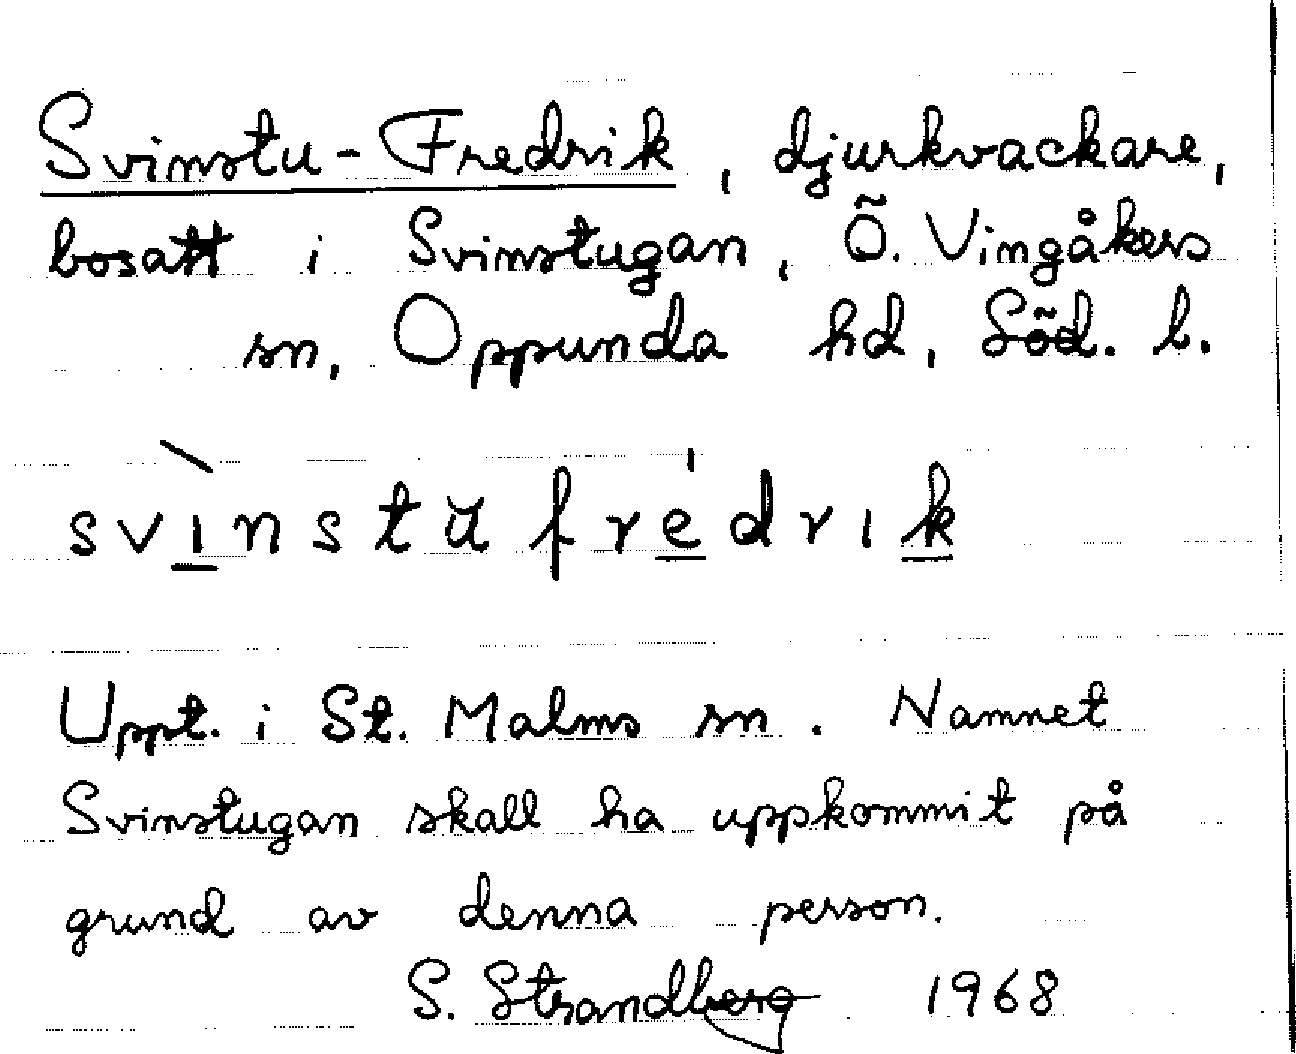 Svinstu-Fredrik, djurkvackare,
bosatt i Svinstugan, Ö. Vingåkers
sn, Oppunda hd, Söd. l.
svìnstŭfrédrık
Uppt. i St. Malms sn. Namnet
Svinstugan skall ha uppkommit på
grund av denna person.
S. Strandberg 1968